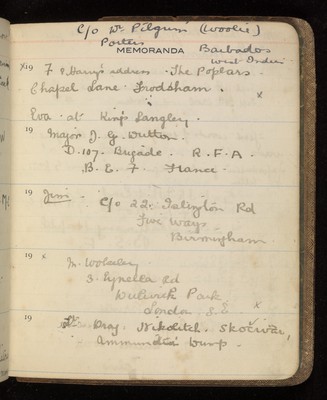 C/o Dr. Pilgrim (Woolie)
Porters
MEMORANDA Barbados
West Indies
x19 F & Harry's address. The Poplars.
Chapel Lane Frodsham. x
Eva at King's Langley.
19 Major J. G. Dutton.
D. 107. Brigade. R. F. A.
B. E. F. France.
19 Jim. C/o 22. Islington Rd
Five Ways
Birmingham
19 x M. Wolseley
3. Rd
Dulwich Park
London S.E x
19 Dr. Drag. Nikolitch. Skočivir,
Ammunition Dump.